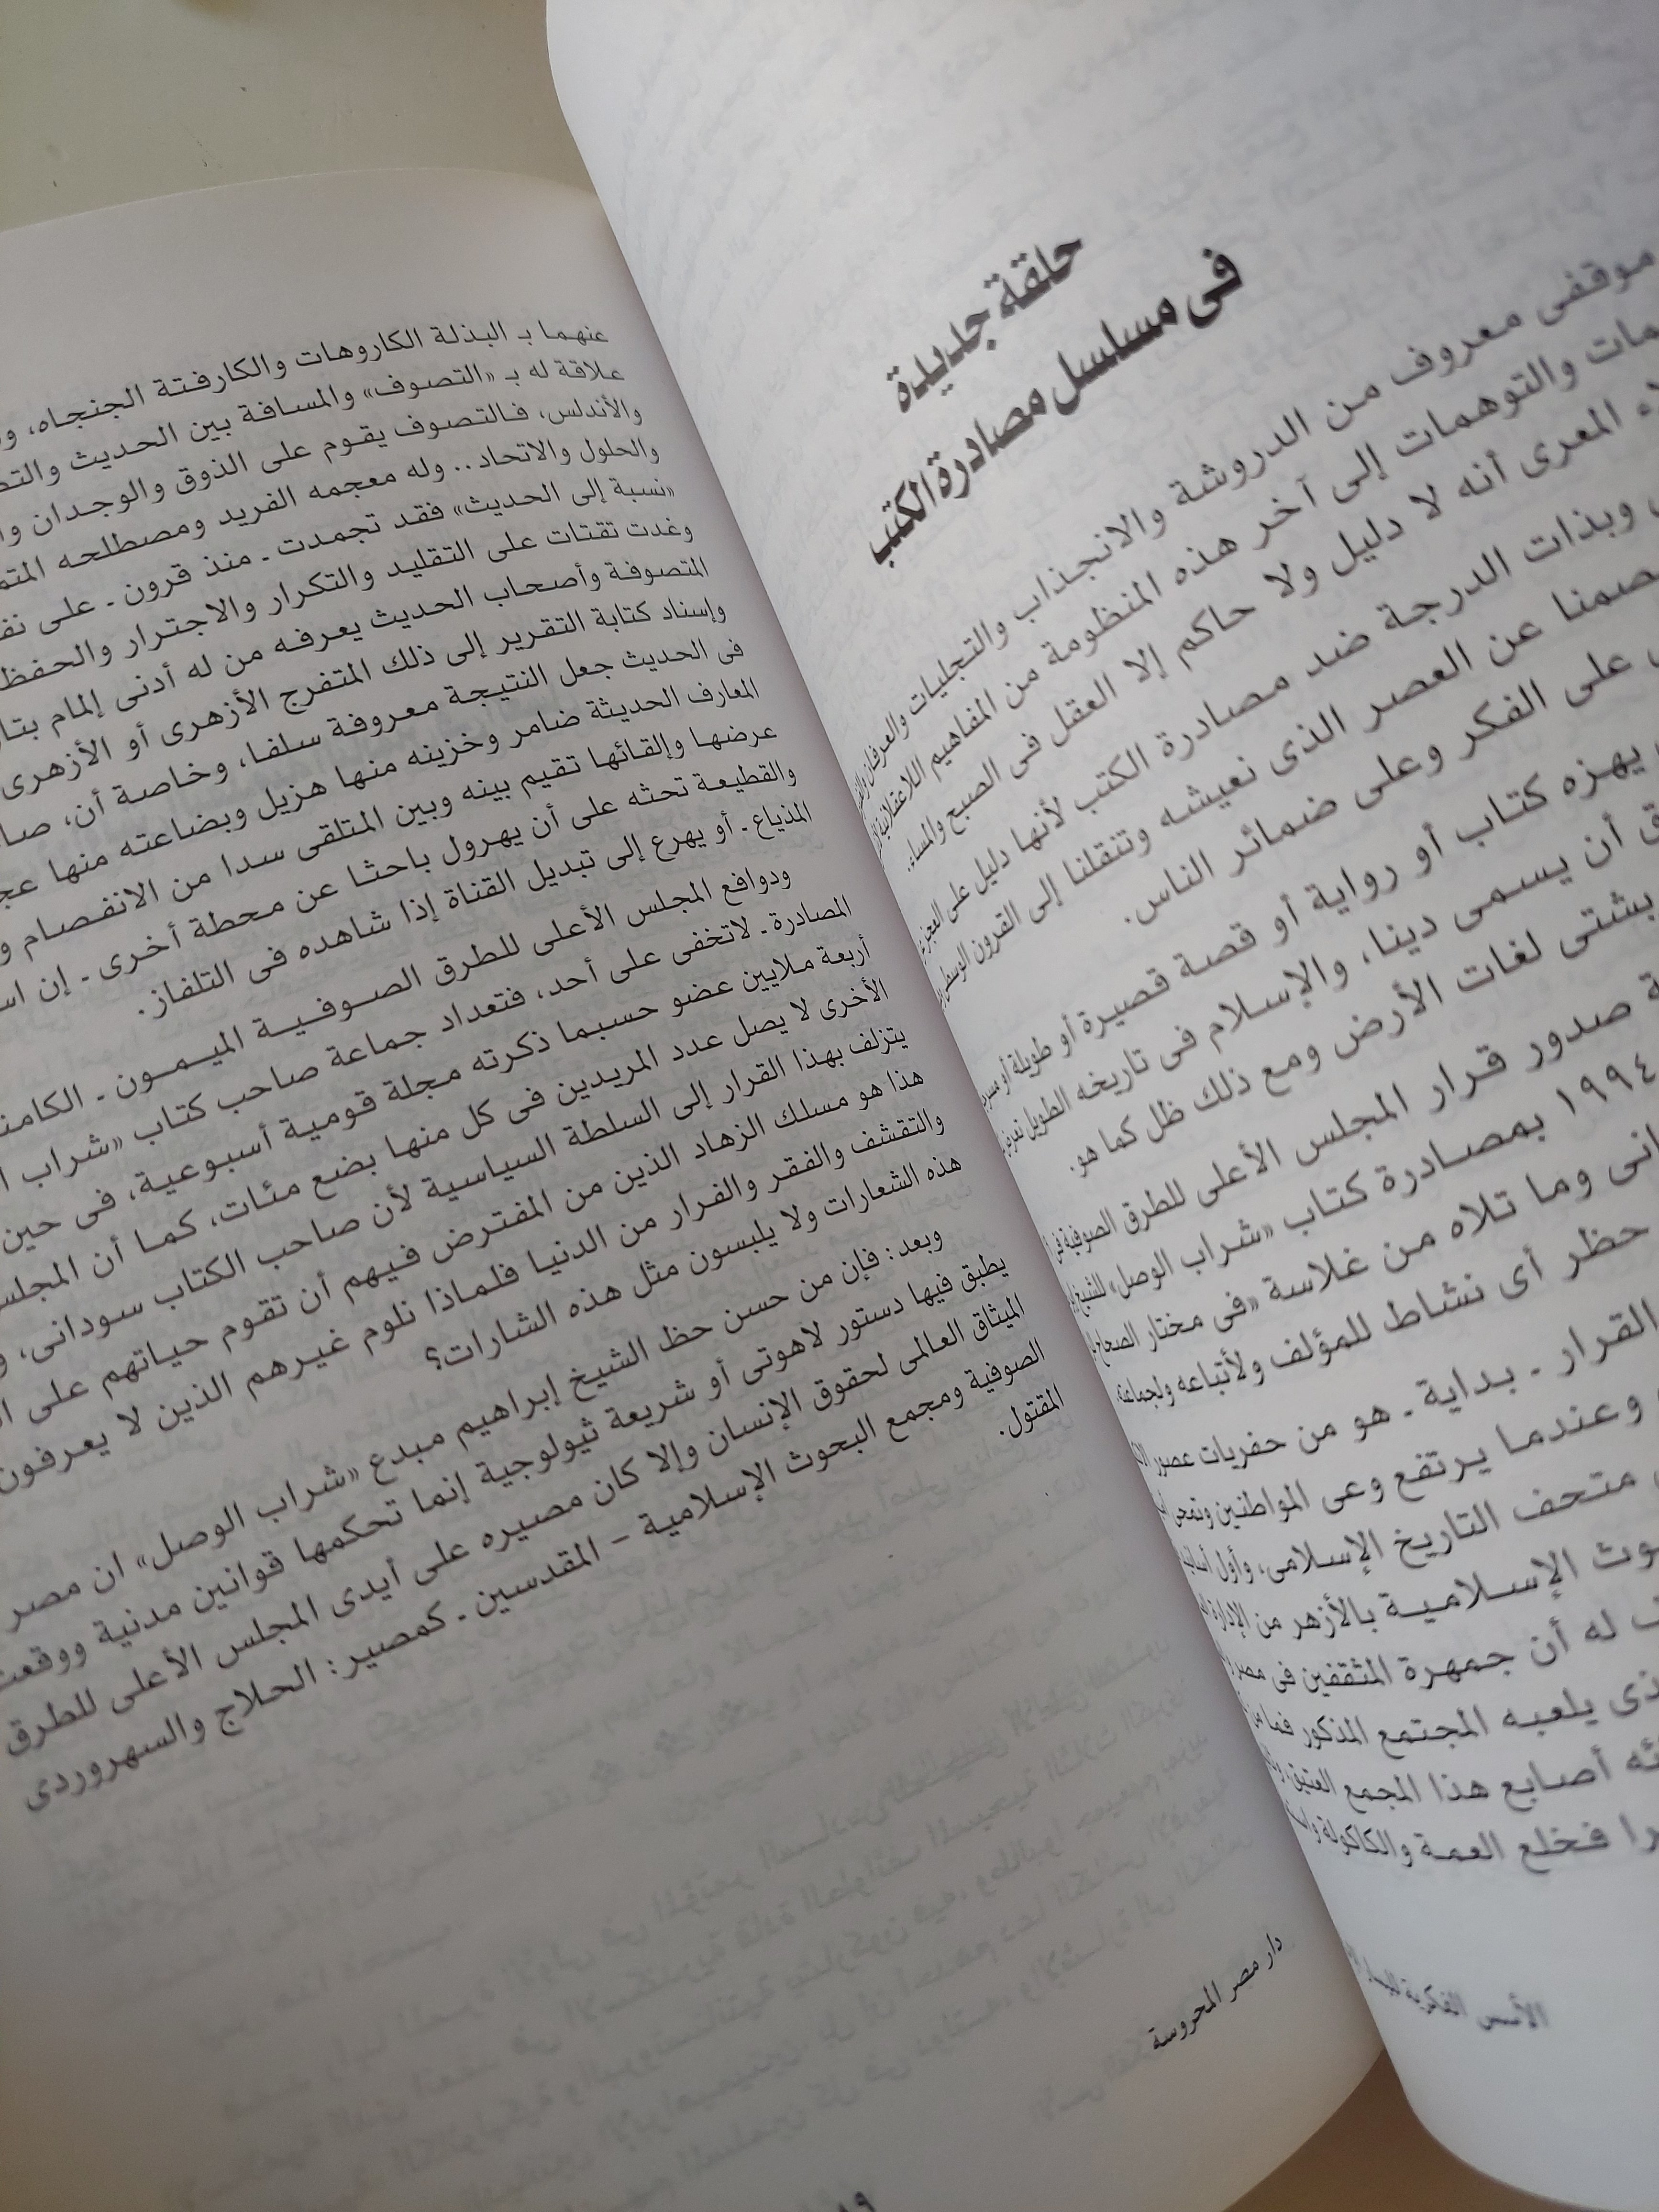 حلقة جديدة
فى مسلسل مصادرة الكتب
موقفى معروف من الدروشة والانجذاب والتجليات والعرفان
والتوهمات إلى آخر هذه المنظومة من المفاهيم اللاعقلانية
المعرى أنه لا دليل ولا حاكم إلا العقل فى الصبح والمساء.
وبذات الدرجة ضد مصادرة الكتب لأنها دليل على العجز
عن العصر الذى نعيشه وتنقلنا إلى القرون الوسطى
على الفكر وعلى ضمائر الناس.
يهزه كتاب أو رواية أو قصة قصيرة أو طويلة أو
أن يسمى دينا، والإسلام فى تاريخه الطويل
بشتى لغات الأرض ومع ذلك ظل كما هو.
صدور قرار المجلس الأعلى للطرق الصوفية فى
١٩٩٤ بمصادرة كتاب «شراب الوصل» للشيخ
وما تلاه من غلاسة «فى مختار الصحاح
حظر أى نشاط للمؤلف ولأتباعه ولجماعته
القرار ـ بداية ـ هو من حفريات عصور
وعندما يرتفع وعى المواطنين
متحف التاريخ الإسلامى، وأول
الإسلامية بالأزهر من الإدارة
له أن جمهرة المثقفين فى مصر
يلعبه المجتمع المذكور فما من
أصابع هذا المجمع العتيق
فخلع العمة والكاكولة
الأسس الفكرية
عنهما بـ البذلة الكاروهات والكارفتة الجنجاه،
علاقة له بـ «التصوف» والمسافة بين الحديث
والأندلس، فالتصوف يقوم على الذوق والوجدان
والحلول والاتحاد.. وله معجمه الفريد ومصطلحه
«نسبة إلى الحديث» فقد تجمدت ـ منذ قرون ـ على
وغدت تقتات على التقليد والتكرار والاجترار والحفظ
المتصوفة وأصحاب الحديث يعرفه من له أدنى إلمام
وإسناد كتابة التقرير إلى ذلك المتفرج الأزهرى أو الأزهرى
فى الحديث جعل النتيجة معروفة سلفا، وخاصة أن،
المعارف الحديثة ضامر وخزينه منها هزيل وبضاعته منها
عرضها وإلقائها تقيم بينه وبين المتلقى سدا من الانفصام
والقطيعة تحثه على أن يهرول باحثا عن محطة أخرى ـ إن
المذياع ـ أو يهرع إلى تبديل القناة إذا شاهده فى التلفاز.
ودوافع المجلس الأعلى للطرق الصوفية الميمون ـ
المصادرة ـ لاتخفى على أحد، فتعداد جماعة صاحب كتاب «شراب
أربعة ملايين عضو حسبما ذكرته مجلة قومية أسبوعية، فى حين
الأخرى لا يصل عدد المريدين فى كل منها بضع مئات، كما أن المجلس
يتزلف بهذا القرار إلى السلطة السياسية لأن صاحب الكتاب سودانى،
هذا هو مسلك الزهاد الذين من المفترض فيهم أن تقوم حياتهم على
والتقشف والفقر والفرار من الدنيا فلماذا نلوم غيرهم الذين لا يعرفون
هذه الشعارات ولا يلبسون مثل هذه الشارات؟
وبعد: فإن من حسن حظ الشيخ إبراهيم مبدع «شراب الوصل» ان مصر
يطبق فيها دستور لاهوتى أو شريعة ثيولوجية إنما تحكمها قوانين مدنية ووقعت
الميثاق العالمى لحقوق الإنسان وإلا كان مصيره على أيدى المجلس الأعلى للطرق
الصوفية ومجمع البحوث الإسلامية – المقدسين ـ كمصير: الحلاج والسهروردى
المقتول.
دار مصر المحروسة